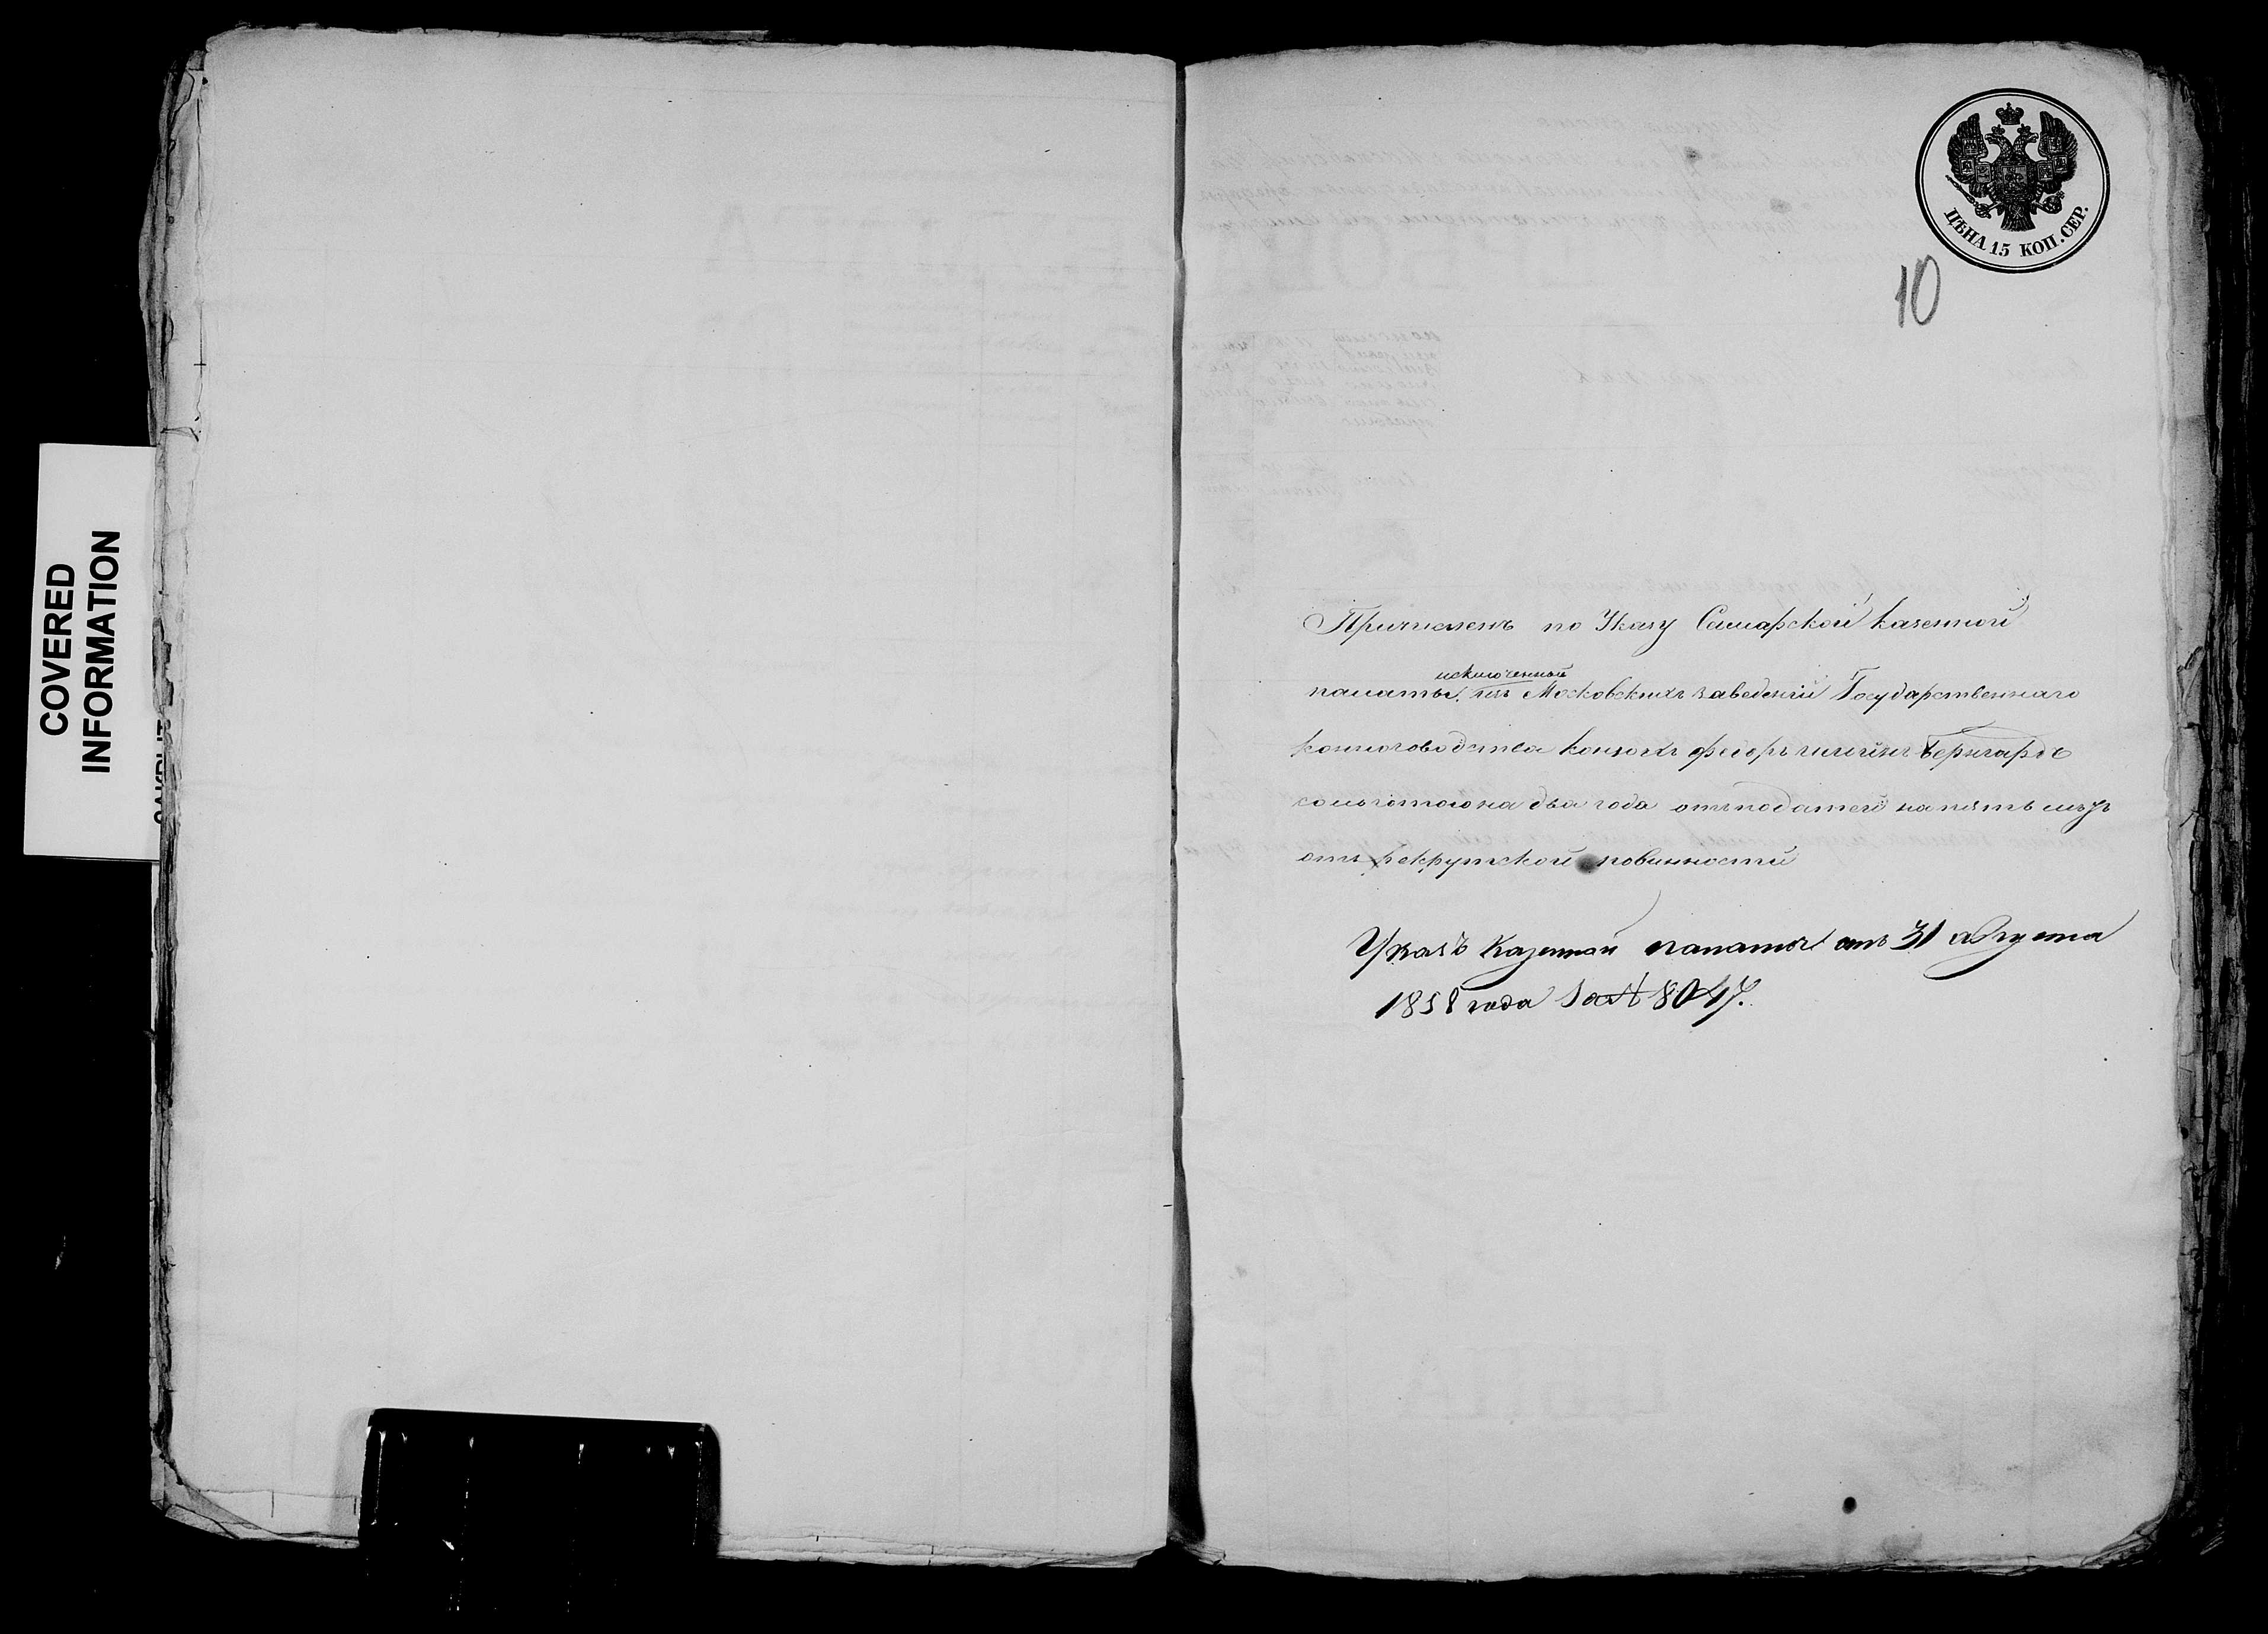 COVERED
INFORMATION
ЦѢНА 15 КОП. СЕР.
10
Причисленъ по Указу Самарской казенной
исключенный
палаты изъ Московскихъ заведеній Государственнаго
коннозаводства конюхъ Бернгардъ
сольготою на два года отъ податей на пять
отъ рекрутской повинности
Указъ Казенной палаты отъ 31 августа
1858 года за № 8047.